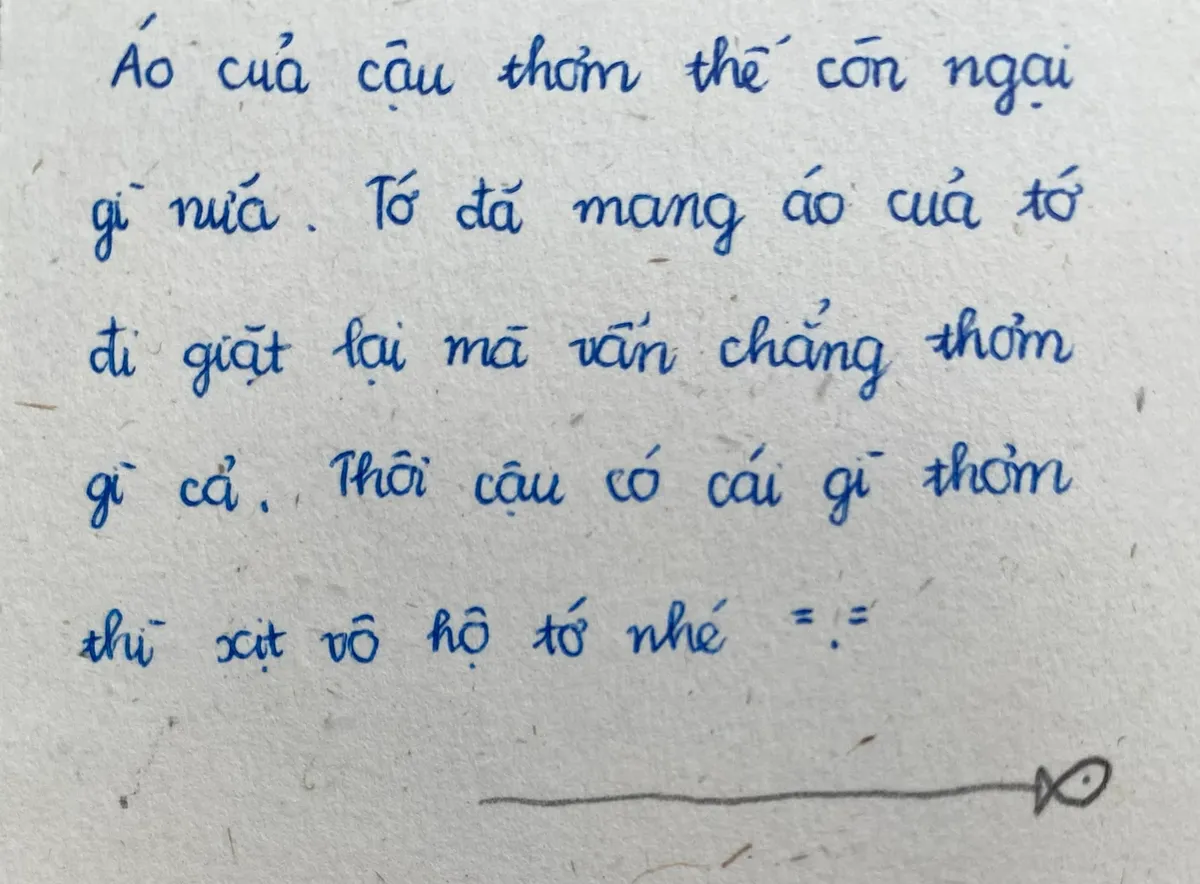 Áo của cậu thơm thế còn ngại
gì nữa. Tớ đã mang áo của tớ
đi giặt lại mà vẫn chẳng thơm
gì cả. Thôi cậu có cái gì thơm
thì xịt vô hộ tớ nhé =.=